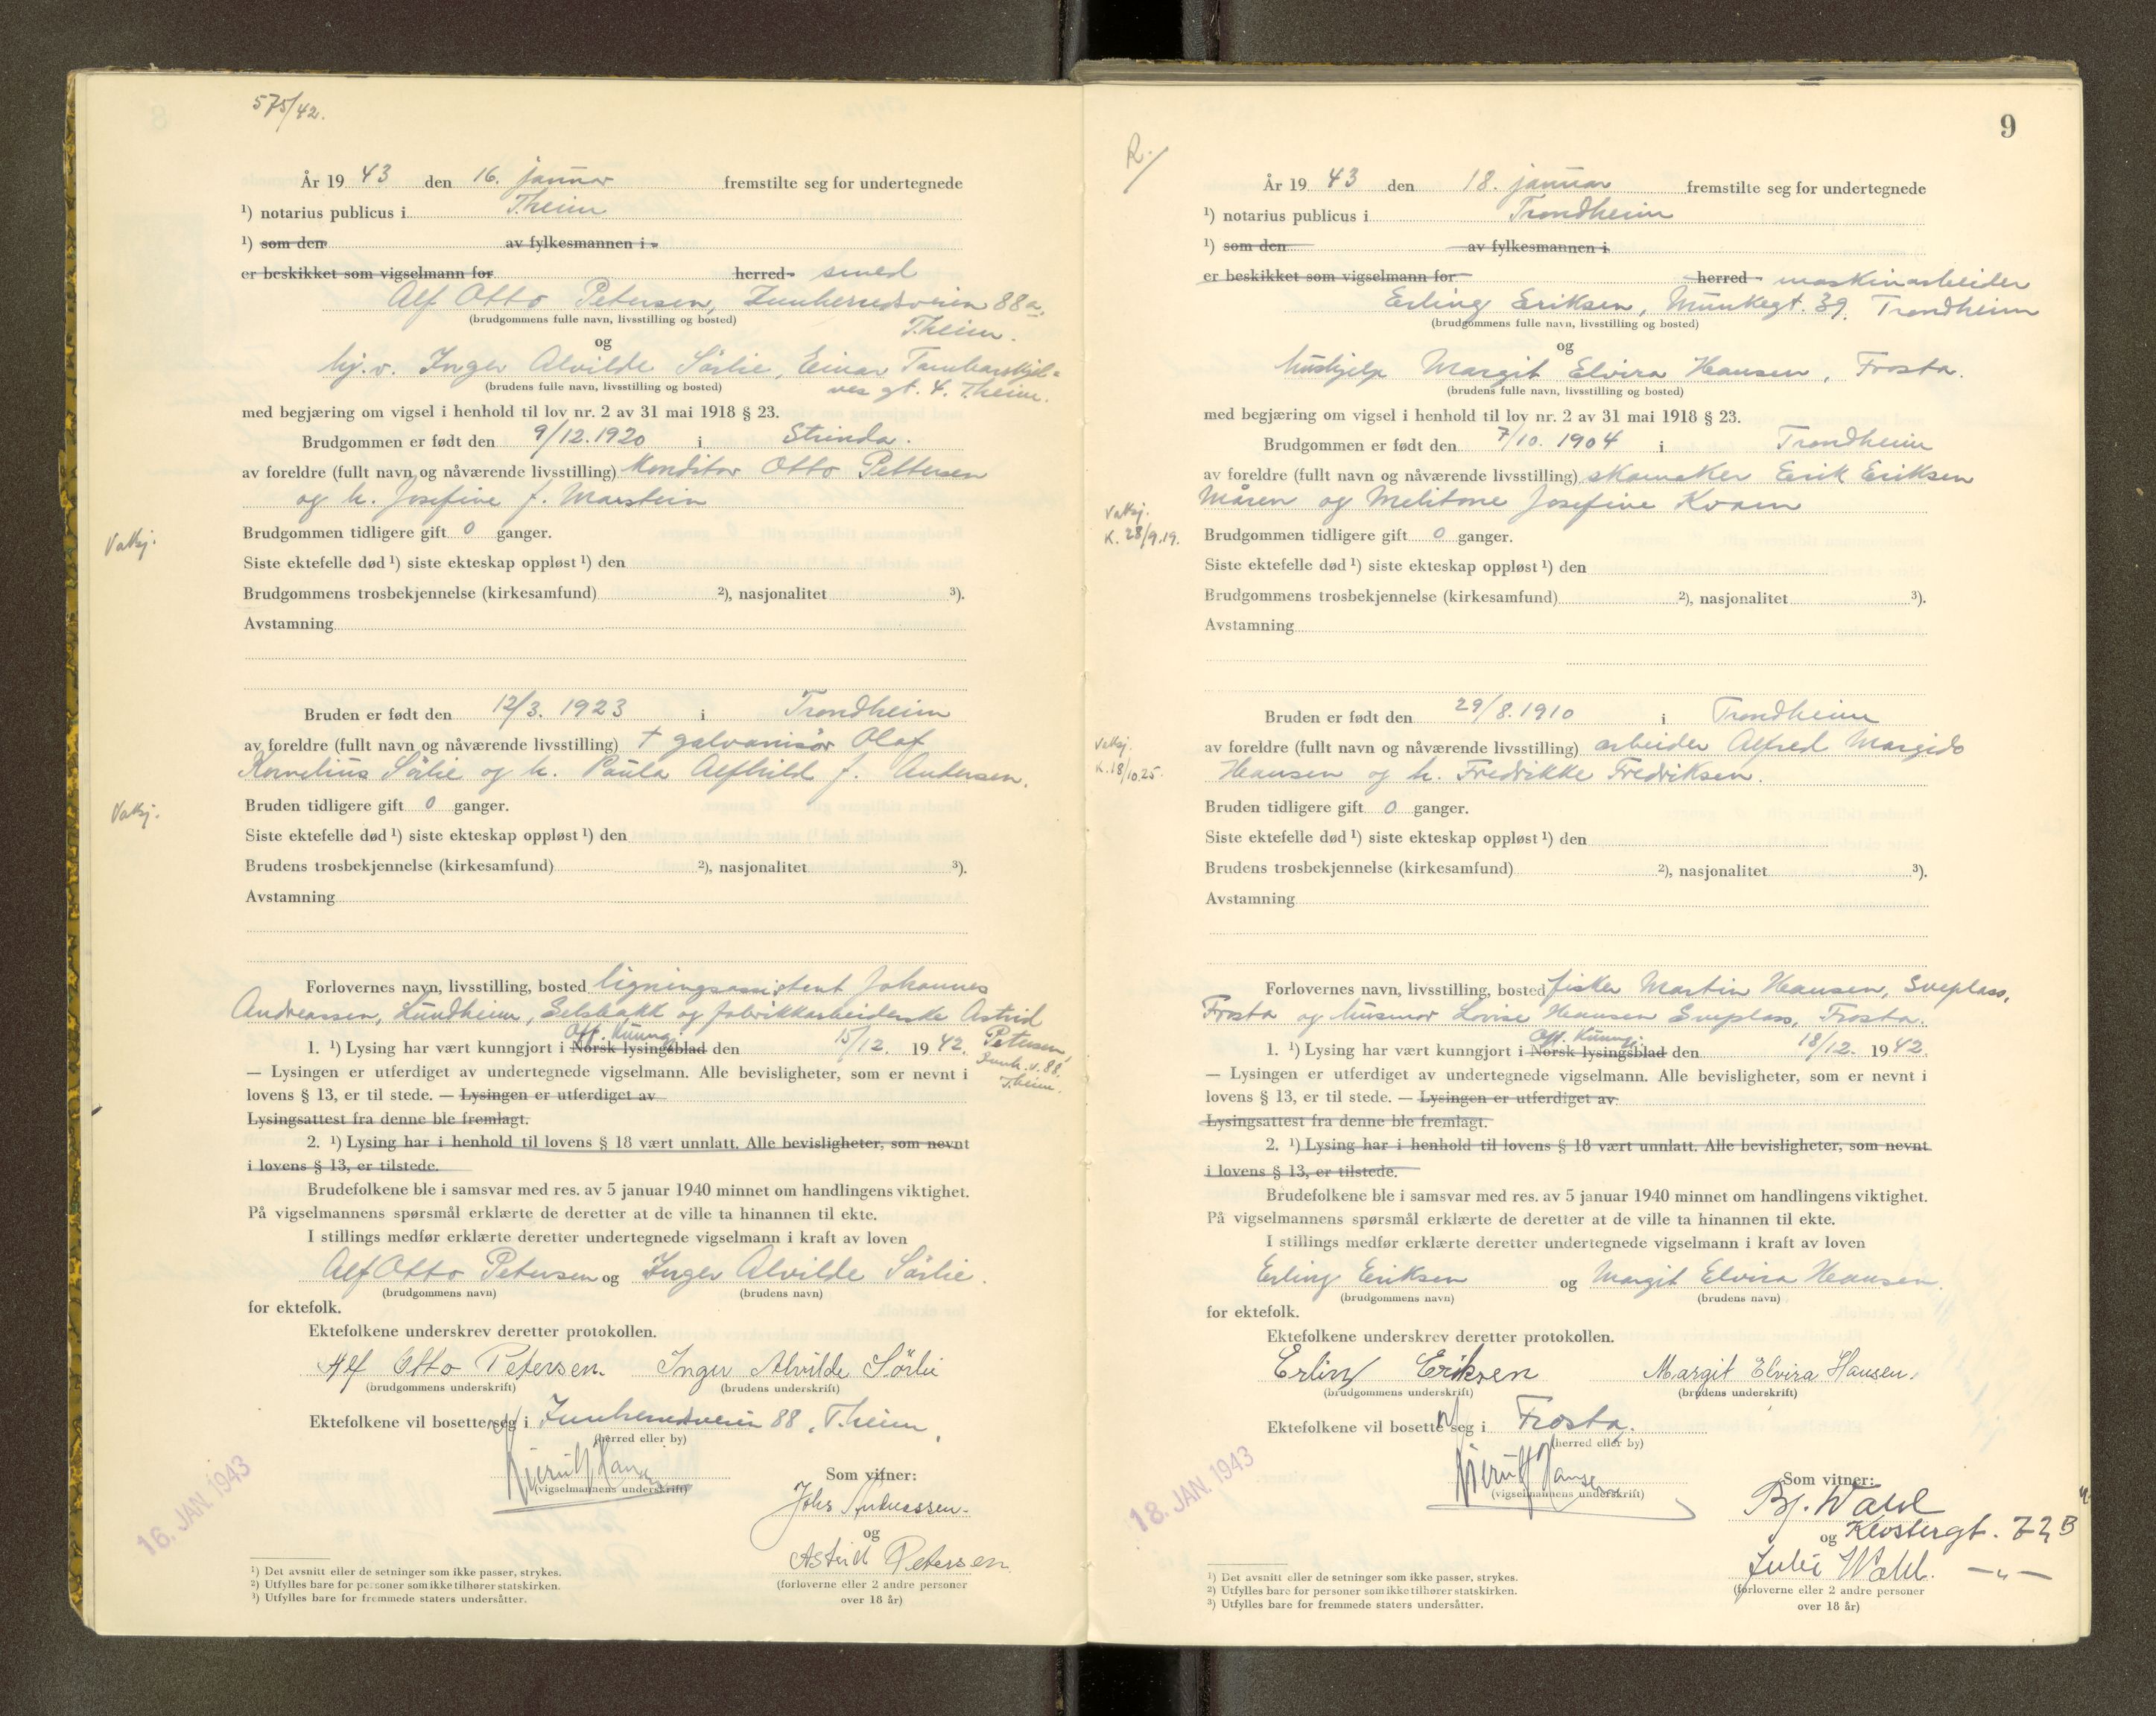 575/42.
År 19 43 den 16. januar fremstilte seg for undertegnede
¹) notarius publicus i T.heim
¹) som den av fylkesmannen i
er beskikket som vigselmann for herred smed
Alf Otto Petersen, Innherredsveien 88a.
(brudgommens fulle navn, livsstilling og bosted) T.heim.
og
hj.v. Inger Alvilde Sørlie, Einar Tambarskjel-
(brudens fulle navn, livsstilling og bosted) ves gt. 4. T.heim.
med begjæring om vigsel i henhold til lov nr. 2 av 31 mai 1918 § 23.
Brudgommen er født den 9/12.1920 i Strinda.
av foreldre (fullt navn og nåværende livsstilling) konditor Otto Pettersen
og h. Josefine f. Marstein
Vatsj.
Brudgommen tidligere gift 0 ganger.
Siste ektefelle død ¹) siste ekteskap oppløst ¹) den
Brudgommens trosbekjennelse (kirkesamfund) ²), nasjonalitet ³).
Avstamning
Bruden er født den 12/3. 1923 i Trondheim
av foreldre (fullt navn og nåværende livsstilling) † galvanisør Olaf
Kornelius Sørlie og h. Paula Alfhild f. Andersen.
Vatsj.
Bruden tidligere gift 0 ganger.
Siste ektefelle død ¹) siste ekteskap oppløst ¹) den
Brudens trosbekjennelse (kirkesamfund) ²), nasjonalitet ³).
Avstamning
Forlovernes navn, livsstilling, bosted ligningsassistent Johannes
Andreassen, Lundheim, Selsbakk og fabrikkarbeiderske Astrid
Off. Kunng.
1. ¹) Lysing har vært kunngjort i Norsk lysingsblad den 15/12. 19 42. Petersen,
Innh.v. 88.
T.heim.
— Lysingen er utferdiget av undertegnede vigselmann. Alle bevisligheter, som er nevnt i
lovens § 13, er til stede. — Lysingen er utferdiget av
Lysingsattest fra denne ble fremlagt.
2. ¹) Lysing har i henhold til lovens § 18 vært unnlatt. Alle bevisligheter, som nevnt
i lovens § 13, er tilstede.
Brudefolkene ble i samsvar med res. av 5 januar 1940 minnet om handlingens viktighet.
På vigselmannens spørsmål erklærte de deretter at de ville ta hinannen til ekte.
I stillings medfør erklærte deretter undertegnede vigselmann i kraft av loven
Alf Otto Petersen og Inger Alvilde Sørlie.
(brudgommens navn) (brudens navn)
for ektefolk.
Ektefolkene underskrev deretter protokollen.
Alf Otto Petersen. Inger Alvilde Sörlie
(brudgommens underskrift) (brudens underskrift)
Ektefolkene vil bosette seg i Innherredsveien 88, T.heim.
(herred eller by)
(vigselmannens underskrift)
Som vitner:
Johs Andreassen.
og
Astrid Petersen
(forloverne eller 2 andre personer
over 18 år)
16. JAN. 1943
¹) Det avsnitt eller de setninger som ikke passer, strykes.
²) Utfylles bare for personer som ikke tilhører statskirken.
³) Utfylles bare for fremmede staters undersåtter.
9
R./
År 19 43 den 18. januar fremstilte seg for undertegnede
¹) notarius publicus i Trondheim
¹) som den av fylkesmannen i
er beskikket som vigselmann for herred maskinarbeider
Erling Eriksen, Munkegt. 39. Trondheim
(brudgommens fulle navn, livsstilling og bosted)
og
hushjelp Margit Elvira Hansen, Frosta.
(brudens fulle navn, livsstilling og bosted)
med begjæring om vigsel i henhold til lov nr. 2 av 31 mai 1918 § 23.
Brudgommen er født den 7/10. 1904 i Trondheim
av foreldre (fullt navn og nåværende livsstilling) skomaker Erik Eriksen
Måren og Melitone Josefine Kvam
Vatsj.
K. 28/9.19.
Brudgommen tidligere gift 0 ganger.
Siste ektefelle død ¹) siste ekteskap oppløst ¹) den
Brudgommens trosbekjennelse (kirkesamfund) ²), nasjonalitet ³).
Avstamning
Bruden er født den 29/8.1910 i Trondheim
Vatsj.
K. 18/10 25.
av foreldre (fullt navn og nåværende livsstilling) arbeider Alfred Margido
Hansen og h. Fredrikke Fredriksen.
Bruden tidligere gift 0 ganger.
Siste ektefelle død ¹) siste ekteskap oppløst ¹) den
Brudens trosbekjennelse (kirkesamfund) ²), nasjonalitet ³).
Avstamning
Forlovernes navn, livsstilling, bosted fisker Martin Hansen, Sveplass,
Frosta og husmor Lovise Hansen Sveplass, Frosta.
Off. Kunng.
1. ¹) Lysing har vært kunngjort i Norsk lysingsblad den 18/12. 19 42.
— Lysingen er utferdiget av undertegnede vigselmann. Alle bevisligheter, som er nevnt i
lovens § 13, er til stede. — Lysingen er utferdiget av
Lysingsattest fra denne ble fremlagt.
2. ¹) Lysing har i henhold til lovens § 18 vært unnlatt. Alle bevisligheter, som nevnt
i lovens § 13, er tilstede.
Brudefolkene ble i samsvar med res. av 5 januar 1940 minnet om handlingens viktighet.
På vigselmannens spørsmål erklærte de deretter at de ville ta hinannen til ekte.
I stillings medfør erklærte deretter undertegnede vigselmann i kraft av loven
Erling Eriksen og Margit Elvira Hansen.
(brudgommens navn) (brudens navn)
for ektefolk.
Ektefolkene underskrev deretter protokollen.
Erling Eriksen Margit Elvira Hansen.
(brudgommens underskrift) (brudens underskrift)
Ektefolkene vil bosette seg i Frosta.
(herred eller by)
(vigselmannens underskrift)
Som vitner:
Bj. Wahl
og Klostergt. 72 B
Julie Wahl. —"—
(forloverne eller 2 andre personer
over 18 år)
18. JAN. 1943
¹) Det avsnitt eller de setninger som ikke passer, strykes.
²) Utfylles bare for personer som ikke tilhører statskirken.
³) Utfylles bare for fremmede staters undersåtter.